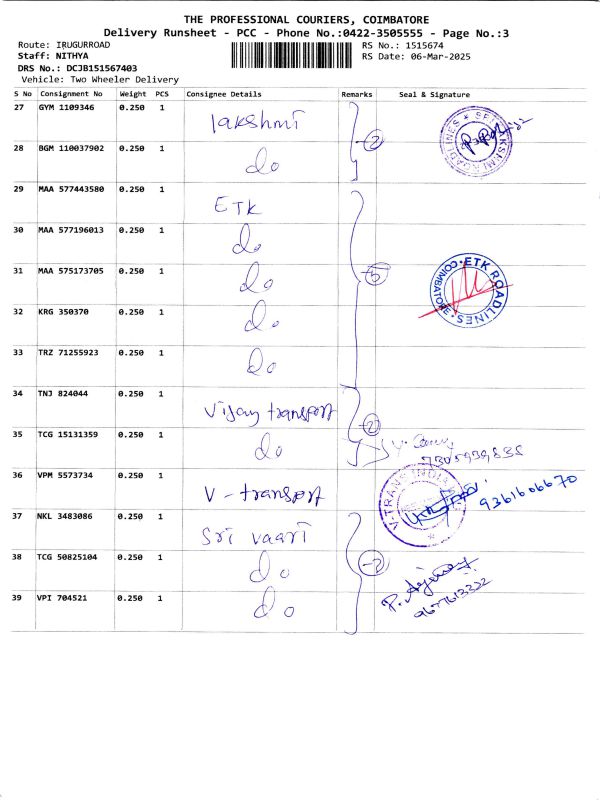 THE PROFESSIONAL COURIERS, COIMBATORE
Delivery Runsheet - PCC - Phone No.:0422-3505555 - Page No.:3
Route: IRUGURROAD
RS No.: 1515674
Staff: NITHYA
RS Date: 06-Mar-2025
DRS No.: DCJB151567403
Vehicle: Two Wheeler Delivery
S No Consignment No Weight PCS Consignee Details Remarks Seal & Signature
27 GYM 1109346 0.250 1 lakshmi
28 BGM 110037902 0.250 1 do
2
29 MAA 577443580 0.250 1 ETK
30 MAA 577196013 0.250 1 do
31 MAA 575173705 0.250 1 do
5
ETK ROADLINES
COIMBATORE
32 KRG 350370 0.250 1 do
33 TRZ 71255923 0.250 1 do
34 TNJ 824044 0.250 1 Vijay transport
2
35 TCG 15131359 0.250 1 do
36 VPM 5573734 0.250 1 V - transport
V-TRANS INDIA
9361606670
37 NKL 3483086 0.250 1 Sri vaari
38 TCG 50825104 0.250 1 do
39 VPI 704521 0.250 1 do